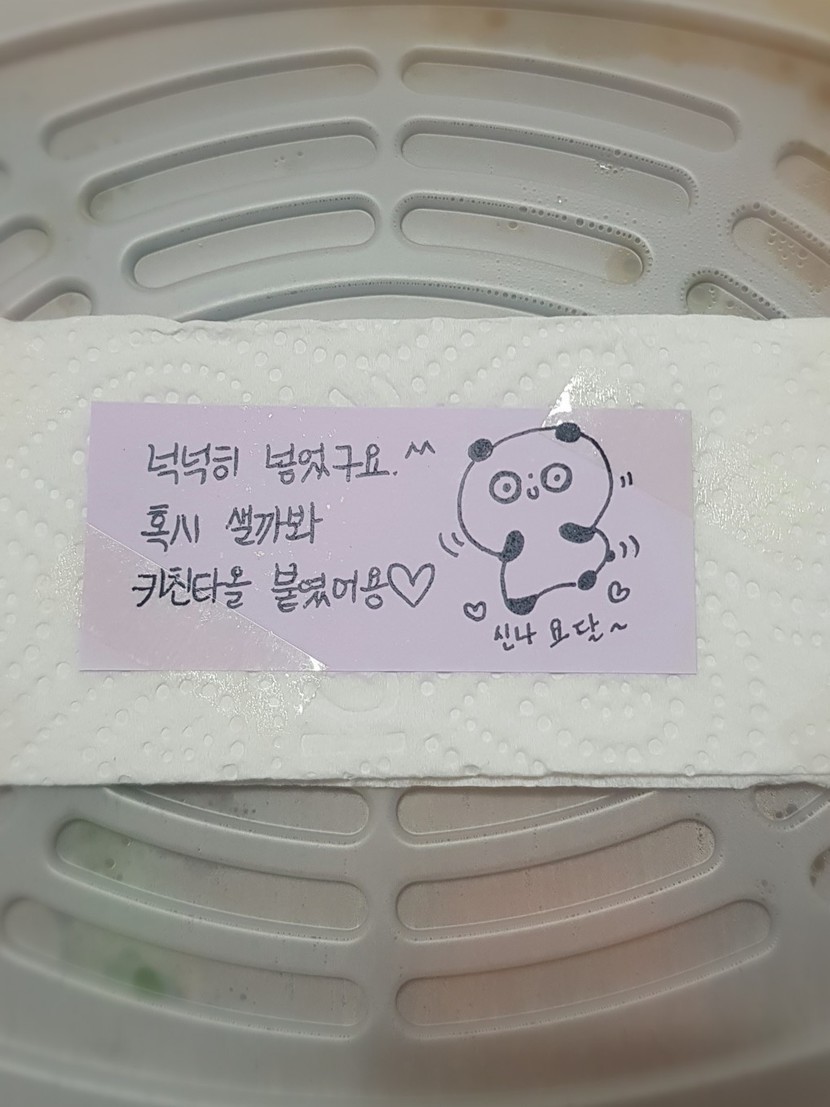 넉넉히 넣었구요.^^
혹시 샐까봐
키친타올 붙였어용♡
신나 요달~